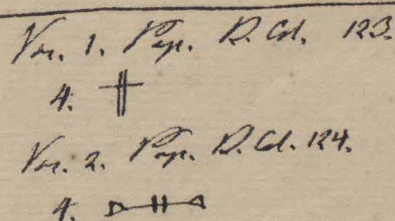 Var. 1. Pap. D. Col. 123.
4.
Var. 2. Pap. D. Col. 124.
4.